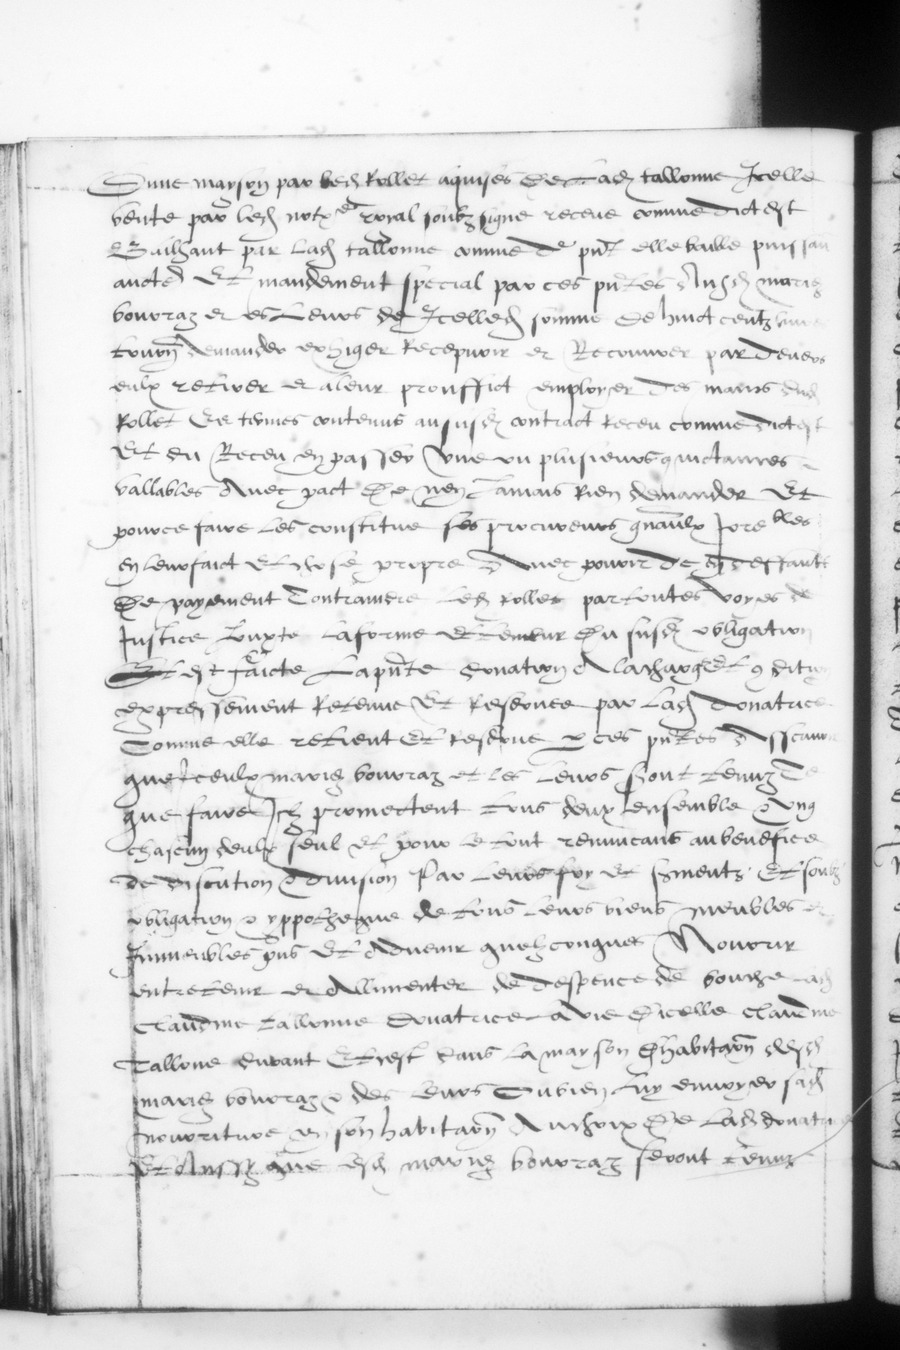 D'une mayson par led Rollet aquises de lad tallonne Jcelle
vente par led not.re royal soubz signe receue comme dict est
Baillant par lad tallonne comme de pnt elle baille puissan
aucte Et mandement special par ces pntes Ausd maries
bovraz et es leurs de Jcelled somme de huict centz livres
tourn demander exhiger Recepvoir et Recouvrer par devers
eulx retirer et a leur prouffict employer des mains dud
Rollet Es termes contenus au susd contract Receu comme dict est
Et du Receu en passer une ou plusieurs quictances
vallables Avec pact de nen Jamais Rien demander Et
pour ce faire les constitue ses procureurs gnaulx Jrre bles
en leur faict et chose propre Avec pouvoir de en deffault
De payement Contraindre led Rollet par toutes voyes de
Justice Jouxte la forme et teneur du susd obligation
Et est faicte la pnte donation A la charge et condition
expressement Retenue Et Reservee par lad donatrice
Comme elle retient Et Reserve p ces pntes Assavoir
que Jceulx maries bovraz et les leurs sont tenuz De
que faire Jlz promettent tous deux ensemble & ung
chascun deulx seul et pour le tout renuncans au benefice
de discution & division Par leurs foy et sments Et soubz
obligation & yppotheque de tous leurs biens meubles et
Jmmeubles pns et Advenir quelzconques Nourrir
entretenir et Allimenter de despence de bouche lad
Claudine tallonne donatrice A vie d'icelle Claudine
Tallone durant Et cest dans la mayson d'habitaon desd
maries bovraz & des leurs Ou bien luy envoyer sad
nourriture en son habitaon Au choix de lad donatrice
Et Aussy que lesd maries bovraz seront tenuz